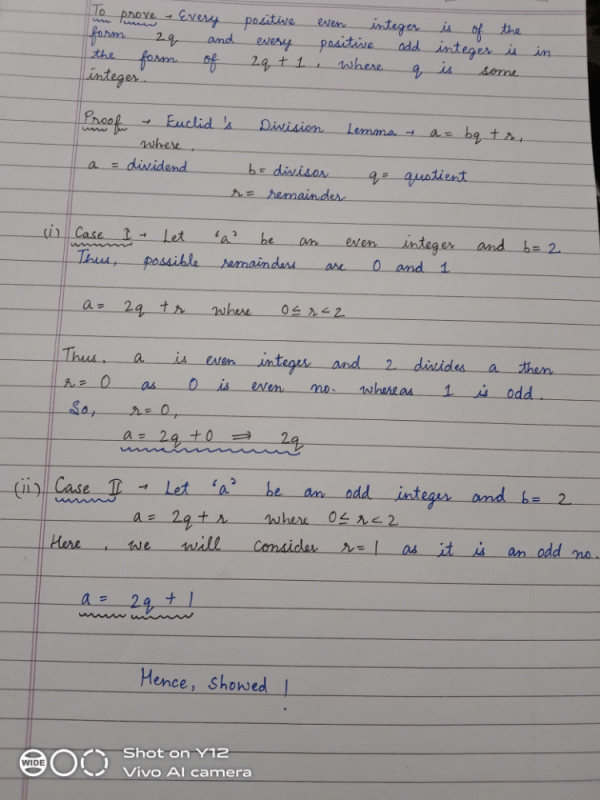 To prove → Every positive even integer is of the
form 2q and every positive odd integer is in
the form of 2q + 1, where q is some
integer.
Proof → Euclid's Division Lemma → a = bq + r,
where,
a = dividend b = divisor q = quotient
r = remainder
(i) Case I → Let 'a' be an even integer and b = 2
Thus, possible remainders are 0 and 1
a = 2q + r where 0 ≤ r < 2
Thus, a is even integer and 2 divides a then
r = 0 as 0 is even no. whereas 1 is odd.
So, r = 0,
a = 2q + 0 ⇒ 2q
(ii) Case II → Let 'a' be an odd integer and b = 2
a = 2q + r where 0 ≤ r < 2
Here, we will consider r = 1 as it is an odd no.
a = 2q + 1
Hence, Showed !
WIDE
Shot on Y12
Vivo AI camera